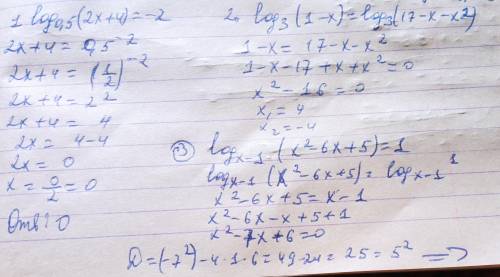 1. log₀,₅(2x+4)=-2
2x+4= 0,5⁻²
2x+4=(1/2)⁻²
2x+4=2²
2x+4= 4
2x= 4-4
2x= 0
x= 0/2 =0
Отв: 0
2. log₃(1-x)=log₃(17-x-x²)
1-x= 17-x-x²
1-x-17+x+x²=0
x²-16=0
x₁=4
x₂=-4
③ logₓ₋₁(x²-6x+5)=1
logₓ₋₁(x²-6x+5)= logₓ₋₁ 1
x²-6x+5= x-1
x²-6x-x+5+1
x²-7x+6=0
D=(-7²)-4·1·6=49-24= 25=5² ⇒